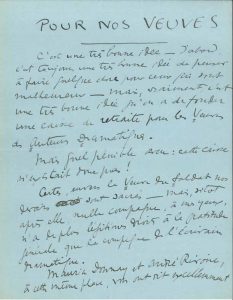 POUR NOS VEUVES
C'est une très bonne idée — d'abord,
c'est toujours une très bonne idée de penser
à faire quelque chose pour ceux qui sont
malheureux — mais, vraiment, c'est
une très bonne idée qu'on a de fonder
une caisse de retraite pour les Veuves
des Auteurs Dramatiques.
Mais quel pénible aveu : cette caisse
n'existait donc pas !
Certes, envers la Veuve du Soldat nos
devoirs sont sacrés — mais, sitôt
après elle nulle compagne, à mes yeux,
n'a de plus légitimes droits à la gratitude
que la compagne de l'écrivain
dramatique.
Maurice Donnay et André Rivoire,
à cette même place, ont